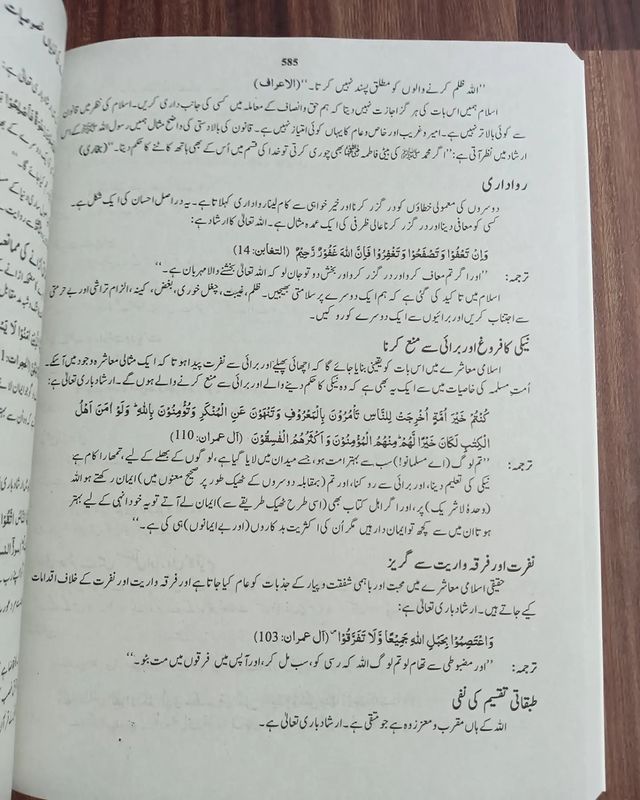 585
"اللہ ظلم کرنے والوں کو مطلق پسند نہیں کرتا۔" (الاعراف)
اسلام ہمیں اس بات کی ہرگز اجازت نہیں دیتا کہ ہم حق و انصاف کے معاملہ میں کسی کی جانب داری کریں۔ اسلام کی نظر میں قانون
سے کوئی بالاتر نہیں ہے۔ امیر و غریب اور خاص و عام کا یہاں کوئی امتیاز نہیں ہے۔ قانون کی بالادستی کی واضح مثال ہمیں رسول اللہ ﷺ کے اس
ارشاد میں نظر آتی ہے: "اگر محمد ﷺ کی بیٹی فاطمہ بھی چوری کرتی تو خدا کی قسم میں اُس کے بھی ہاتھ کاٹنے کا حکم دیتا۔" (بخاری)
رواداری
دوسروں کی معمولی خطاؤں کو درگزر کرنا اور خیر خواہی سے کام لینا رواداری کہلاتا ہے۔ یہ دراصل احسان کی ایک شکل ہے۔
کسی کو معافی دینا اور درگزر کرنا عالی ظرفی کی ایک عمدہ مثال ہے۔ اللہ تعالیٰ کا ارشاد ہے:
وَاِنْ تَعْفُوْا وَتَصْفَحُوْا وَتَغْفِرُوْا فَاِنَّ اللّٰهَ غَفُوْرٌ رَّحِيْمٌ (التغابن: 14)
ترجمہ: "اور اگر تم معاف کرو اور درگزر کرو اور بخش دو تو جان لو کہ اللہ تعالیٰ بخشنے والا مہربان ہے۔"
اسلام میں تاکید کی گئی ہے کہ ہم ایک دوسرے پر سلامتی بھیجیں۔ ظلم، غیبت، چغل خوری، بغض، کینہ، الزام تراشی اور بے حرمتی
سے اجتناب کریں اور برائیوں سے ایک دوسرے کو روکیں۔
نیکی کا فروغ اور برائی سے منع کرنا
اسلامی معاشرے میں اس بات کو یقینی بنایا جائے گا کہ اچھائی پھیلے اور برائی سے نفرت پیدا ہو تاکہ ایک مثالی معاشرہ وجود میں آسکے۔
اُمتِ مسلمہ کی خاصیات میں سے ایک یہ بھی ہے کہ وہ نیکی کا حکم دینے والے اور برائی سے منع کرنے والے ہوں گے۔ ارشاد باری تعالیٰ ہے:
كُنْتُمْ خَيْرَ اُمَّةٍ اُخْرِجَتْ لِلنَّاسِ تَاْمُرُوْنَ بِالْمَعْرُوْفِ وَتَنْهَوْنَ عَنِ الْمُنْكَرِ وَتُؤْمِنُوْنَ بِاللّٰهِ ؕ وَلَوْ اٰمَنَ اَهْلُ
الْكِتٰبِ لَكَانَ خَيْرًا لَّهُمْ ؕ مِنْهُمُ الْمُؤْمِنُوْنَ وَاَكْثَرُهُمُ الْفٰسِقُوْنَ (آل عمران: 110)
ترجمہ: "تم لوگ (اے مسلمانو!) سب سے بہتر امت ہو، جسے میدان میں لایا گیا ہے، لوگوں کے بھلے کے لیے، تمھارا کام ہے
نیکی کی تعلیم دینا، اور برائی سے روکنا، اور تم (بمقابلہ دوسروں کے ٹھیک طور پر صحیح معنوں میں) ایمان رکھتے ہو اللہ
(وحدہٗ لاشریک) پر، اور اگر اہل کتاب بھی (اسی طرح ٹھیک طریقے سے) ایمان لے آتے تو یہ خود انہی کے لیے بہتر
ہوتا ان میں سے کچھ تو ایمان دار ہیں مگر اُن کی اکثریت بدکاروں (اور بے ایمانوں) ہی کی ہے۔"
نفرت اور فرقہ واریت سے گریز
حقیقی اسلامی معاشرے میں محبت اور باہمی شفقت و پیار کے جذبات کو عام کیا جاتا ہے اور فرقہ واریت اور نفرت کے خلاف اقدامات
کیے جاتے ہیں۔ ارشاد باری تعالیٰ ہے:
وَاعْتَصِمُوْا بِحَبْلِ اللّٰهِ جَمِيْعًا وَّلَا تَفَرَّقُوْا (آل عمران: 103)
ترجمہ: "اور مضبوطی سے تھام لو تم لوگ اللہ کہ رسی کو، سب مل کر، اور آپس میں فرقوں میں مت بٹو۔"
طبقاتی تقسیم کی نفی
اللہ کے ہاں مقرب و معزز وہ ہے جو متقی ہے۔ ارشاد باری تعالیٰ ہے۔